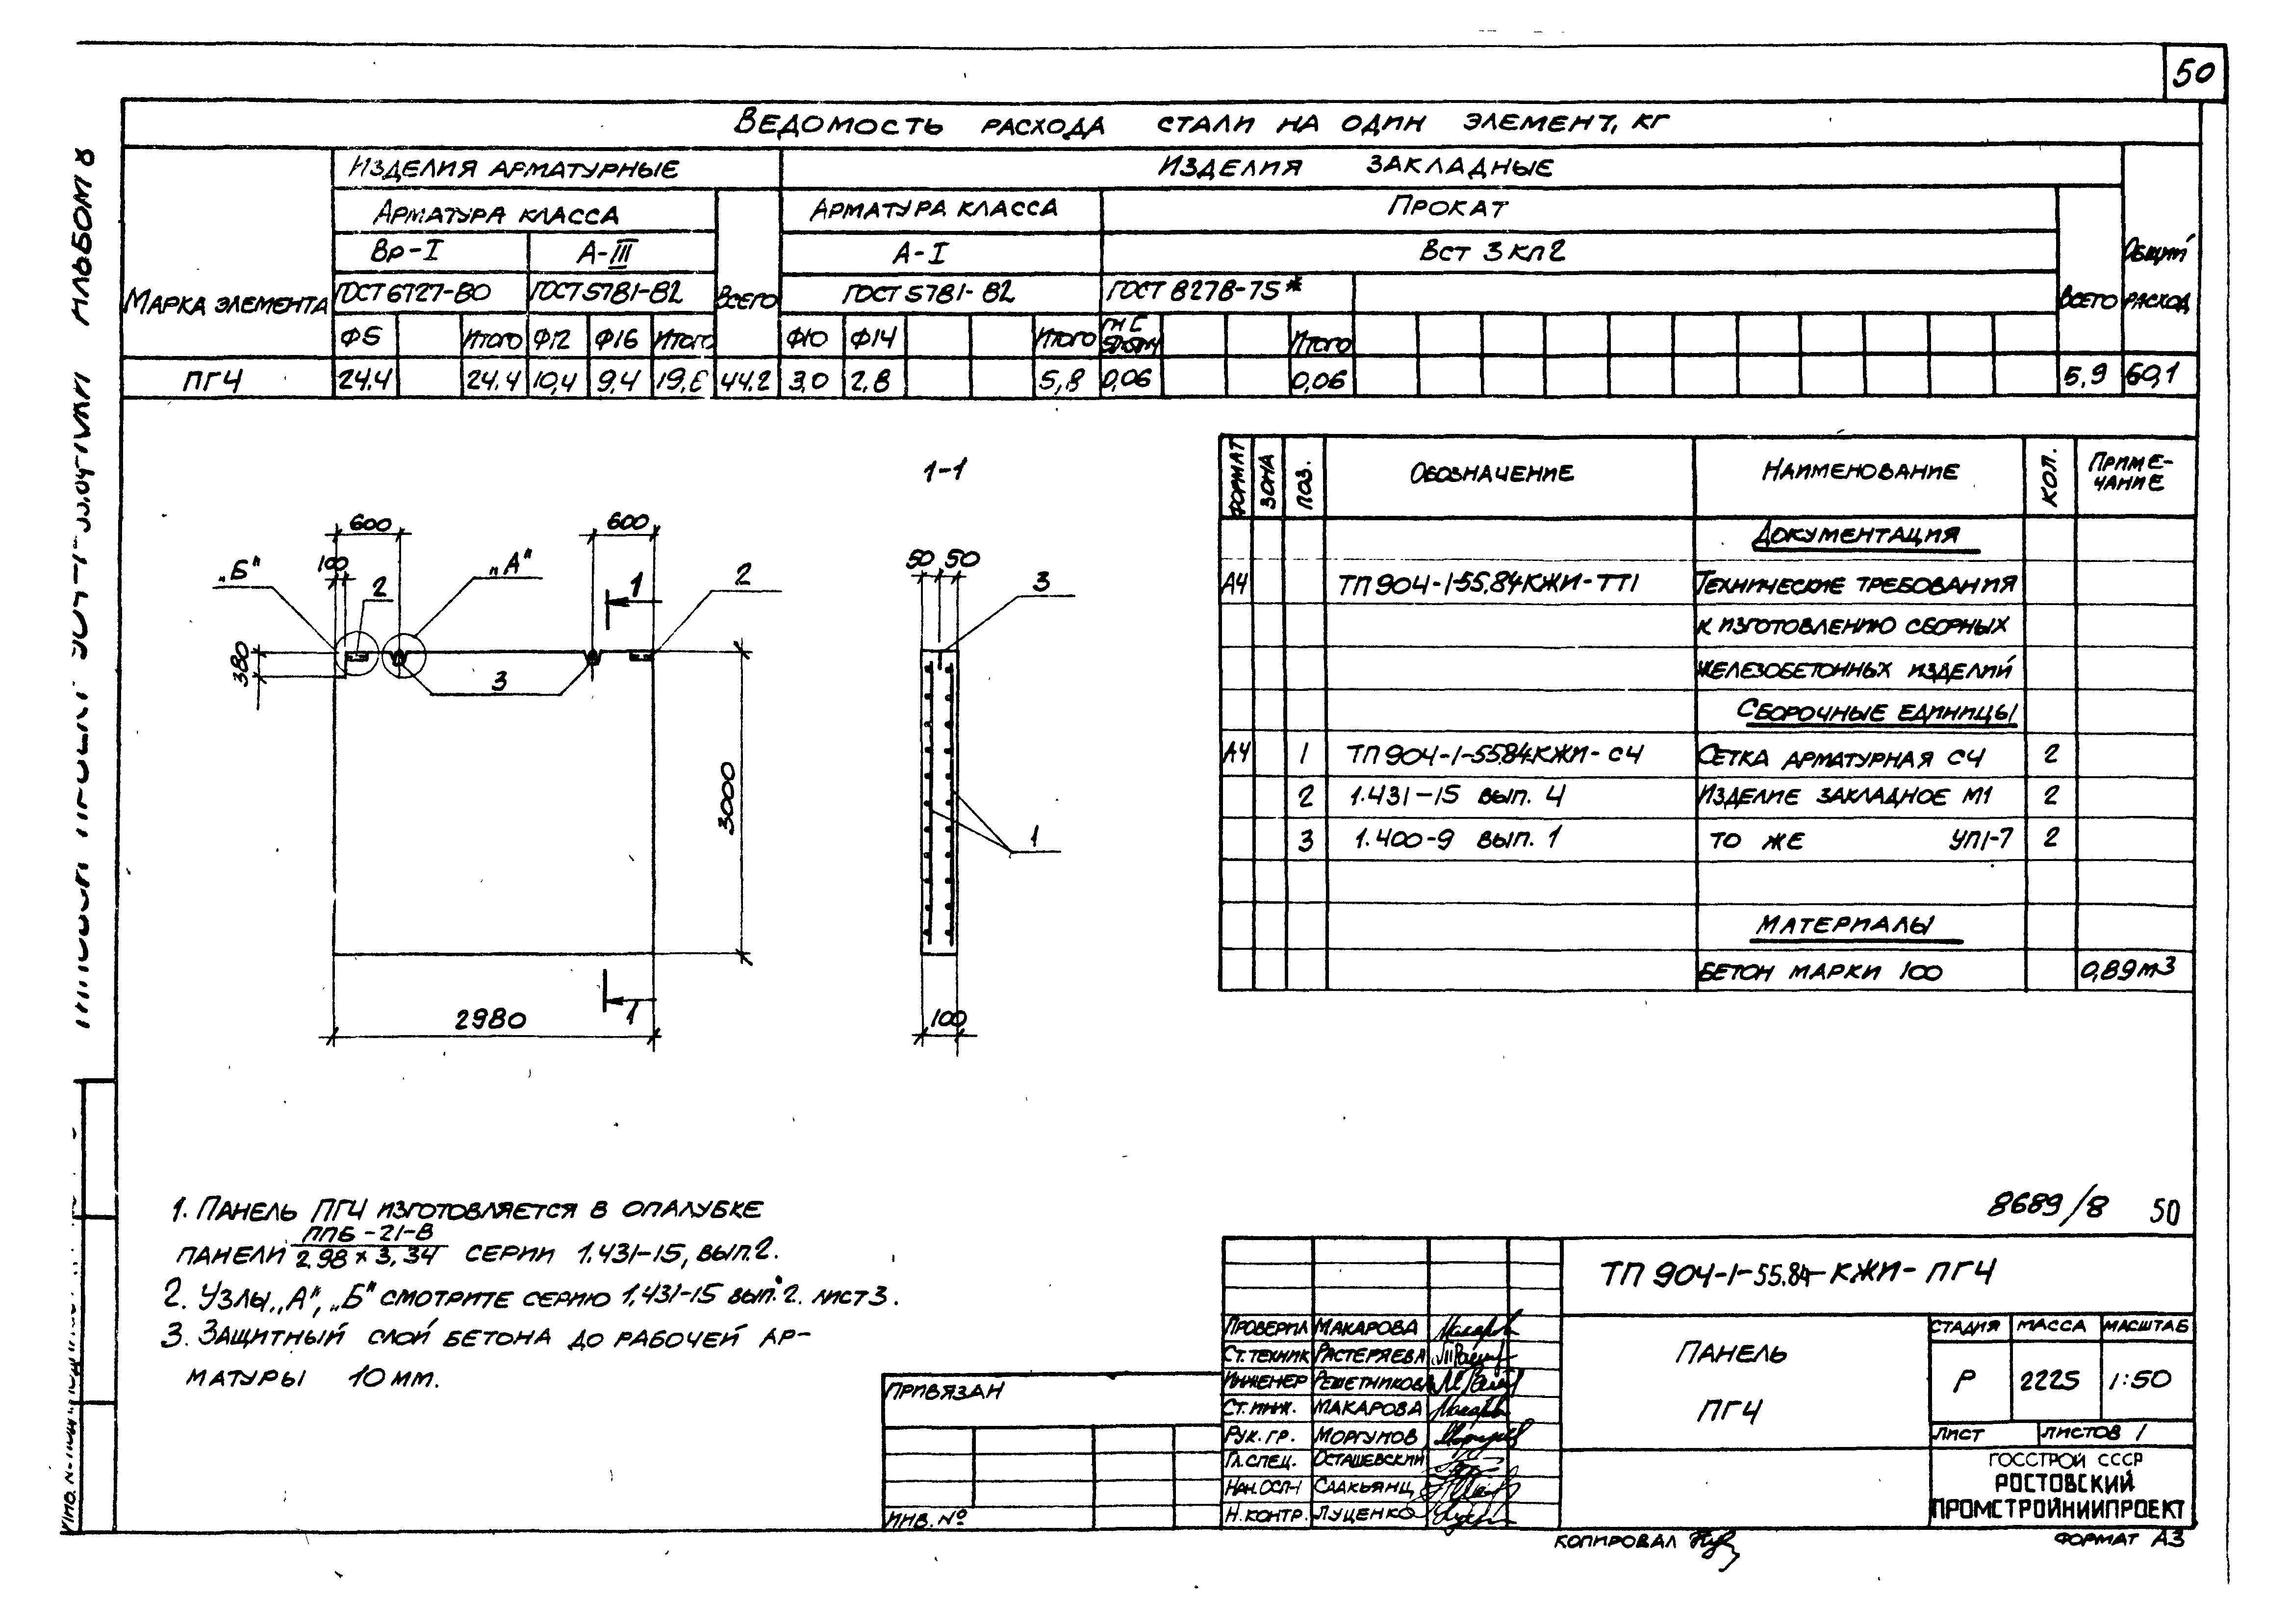 50
Ведомость расхода стали на один элемент, кг
Марка элемента
Изделия арматурные
Изделия закладные
Общий расход
Арматура класса
Всего
Арматура класса
Прокат
Всего
Вр-I
А-III
А-I
Вст 3 кп2
ГОСТ 6727-80
ГОСТ 5781-82
ГОСТ 5781-82
ГОСТ 8278-75*
Ф5 Итого Ф12 Ф16 Итого Ф10 Ф14 Итого Итого
ПГ4 24.4 24.4 10,4 9,4 44.2 3,0 2,8 5,8 0,06 0,06 5,9
Альбом 8
600
600
„Б"
100
2
„А"
1
2
380
3
3000
2980
1
1-1
50 50
3
1
100
Формат Зона Поз. Обозначение Наименование Кол. Приме-
чание
Документация
А4 ТП 904-1-55.84 КЖИ-ТТ1 Технические требования
к изготовлению сборных
железобетонных изделий
Сборочные единицы
А4 1 ТП 904-1-55.84 КЖИ-С4 Сетка арматурная С4 2
2 1.431-15 вып. 4 Изделие закладное М1 2
3 1.400-9 вып. 1 То же УП1-7 2
Материалы
Бетон марки 100 0,89 м3
1. Панель ПГ4 изготовляется в опалубке
панели ППБ-21-В / 2.98 × 3,34 серии 1.431-15, вып. 2.
2. Узлы „А", „Б" смотрите серию 1.431-15 вып. 2. лист 3.
3. Защитный слой бетона до рабочей ар-
матуры 10 мм.
8689/8 50
Привязан
Инв. №
ТП 904-1-55.84-КЖИ-ПГ4
Проверил Макарова
Ст. техник Растеряева
Инженер Решетникова
Ст. инж. Макарова
Рук. гр. Моргунов
Гл. спец. Осташевский
Саакьянц
Н. контр. Луценко
Панель
ПГ4
Стадия Масса Масштаб
Р 2225 1:50
Лист Листов 1
ГОССТРОЙ СССР
РОСТОВСКИЙ
ПРОМСТРОЙНИИПРОЕКТ
Копировал
Формат А3